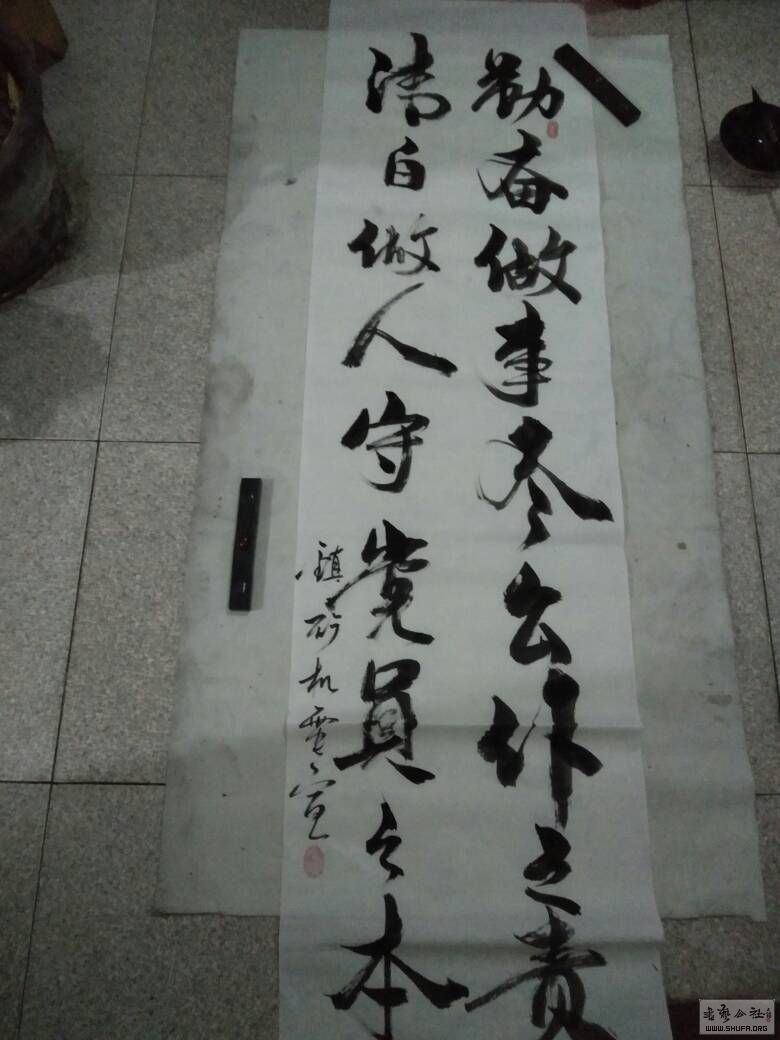 勤奋做事尽公仆之责
清白做人守党員之本
書藝公社
WWW.SHUFA.ORG